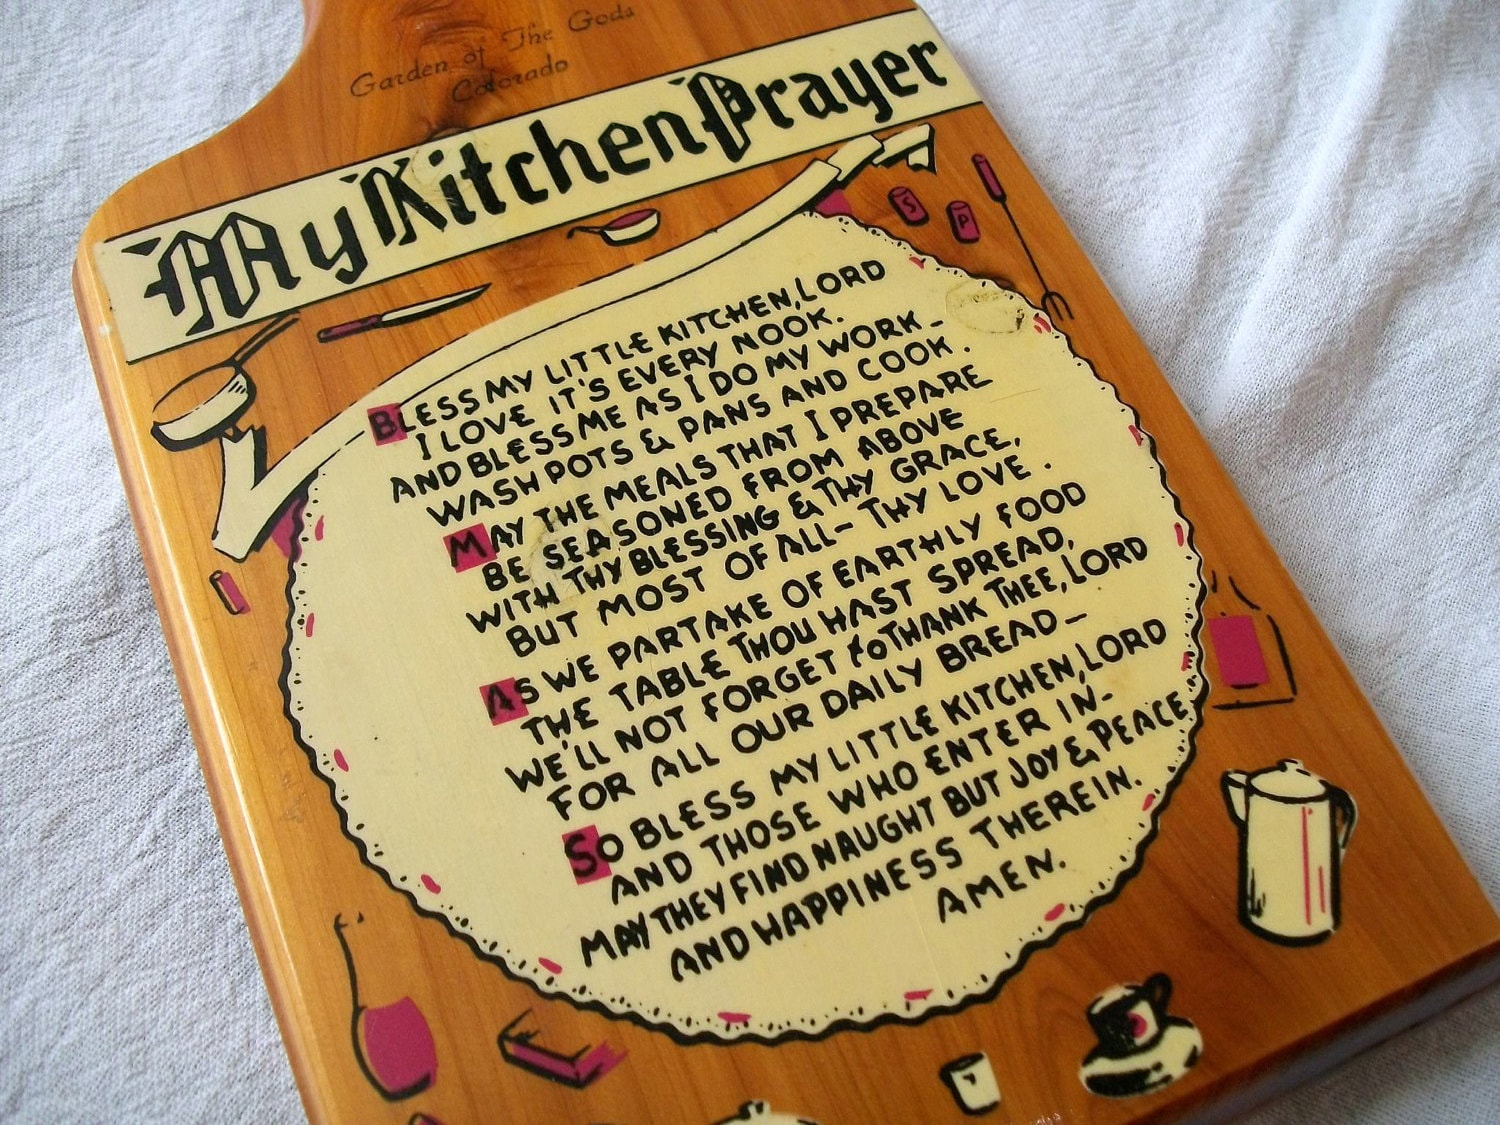 Garden of The Gods
Colorado
My Kitchen Prayer
S
P
BLESS MY LITTLE KITCHEN, LORD
I LOVE IT'S EVERY NOOK.
AND BLESS ME AS I DO MY WORK -
WASH POTS & PANS AND COOK.
MAY THE MEALS THAT I PREPARE
BE SEASONED FROM ABOVE
WITH THY BLESSING & THY GRACE,
BUT MOST OF ALL - THY LOVE.
AS WE PARTAKE OF EARTHLY FOOD
THE TABLE THOU HAST SPREAD,
WE'LL NOT FORGET to THANK THEE, LORD
FOR ALL OUR DAILY BREAD -
SO BLESS MY LITTLE KITCHEN, LORD
AND THOSE WHO ENTER IN -
MAY THEY FIND NAUGHT BUT JOY & PEACE,
AND HAPPINESS THEREIN.
AMEN.